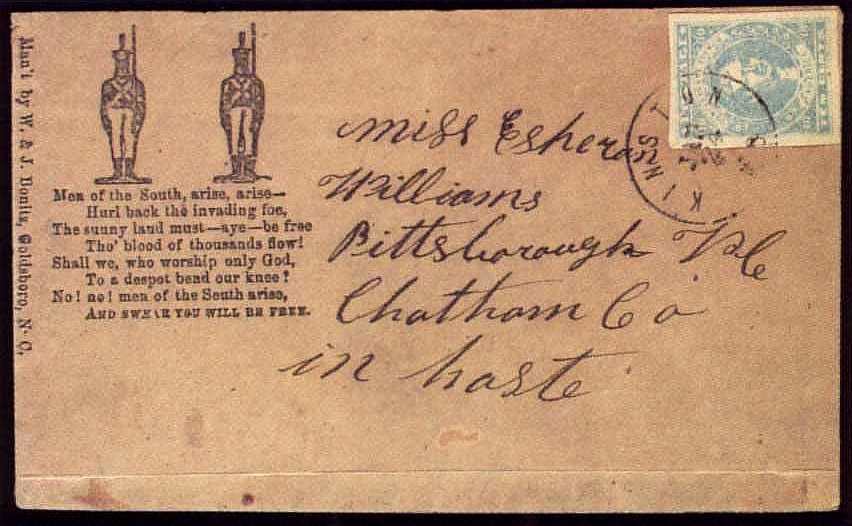 Man't by W. & J. Bonitz, Goldsboro, N. C.
Men of the South, arise, arise—
Hurl back the invading foe,
The sunny land must—aye—be free
Tho' blood of thousands flow!
Shall we, who worship only God,
To a despot bend our knee?
No! no! men of the South arise,
AND SWEAR YOU WILL BE FREE.
Miss
Williams
Pittsborough N C
Chatham Co
in haste
KINST
N C